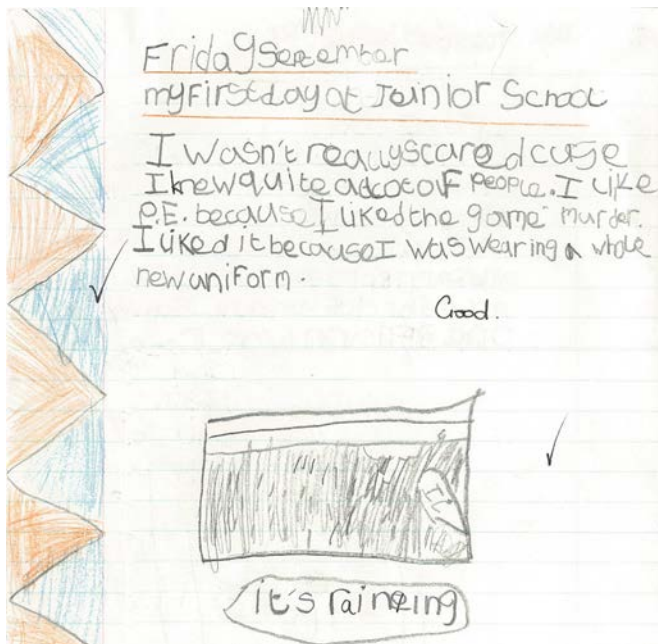 Friday September
my First day at Jainior School
I wasn't really scared cuse
I knew quite a lot of people. I like
P.E. because I liked the game murder.
I liked it because I was wearing a whole
new uniform.
Good.
it's raineing